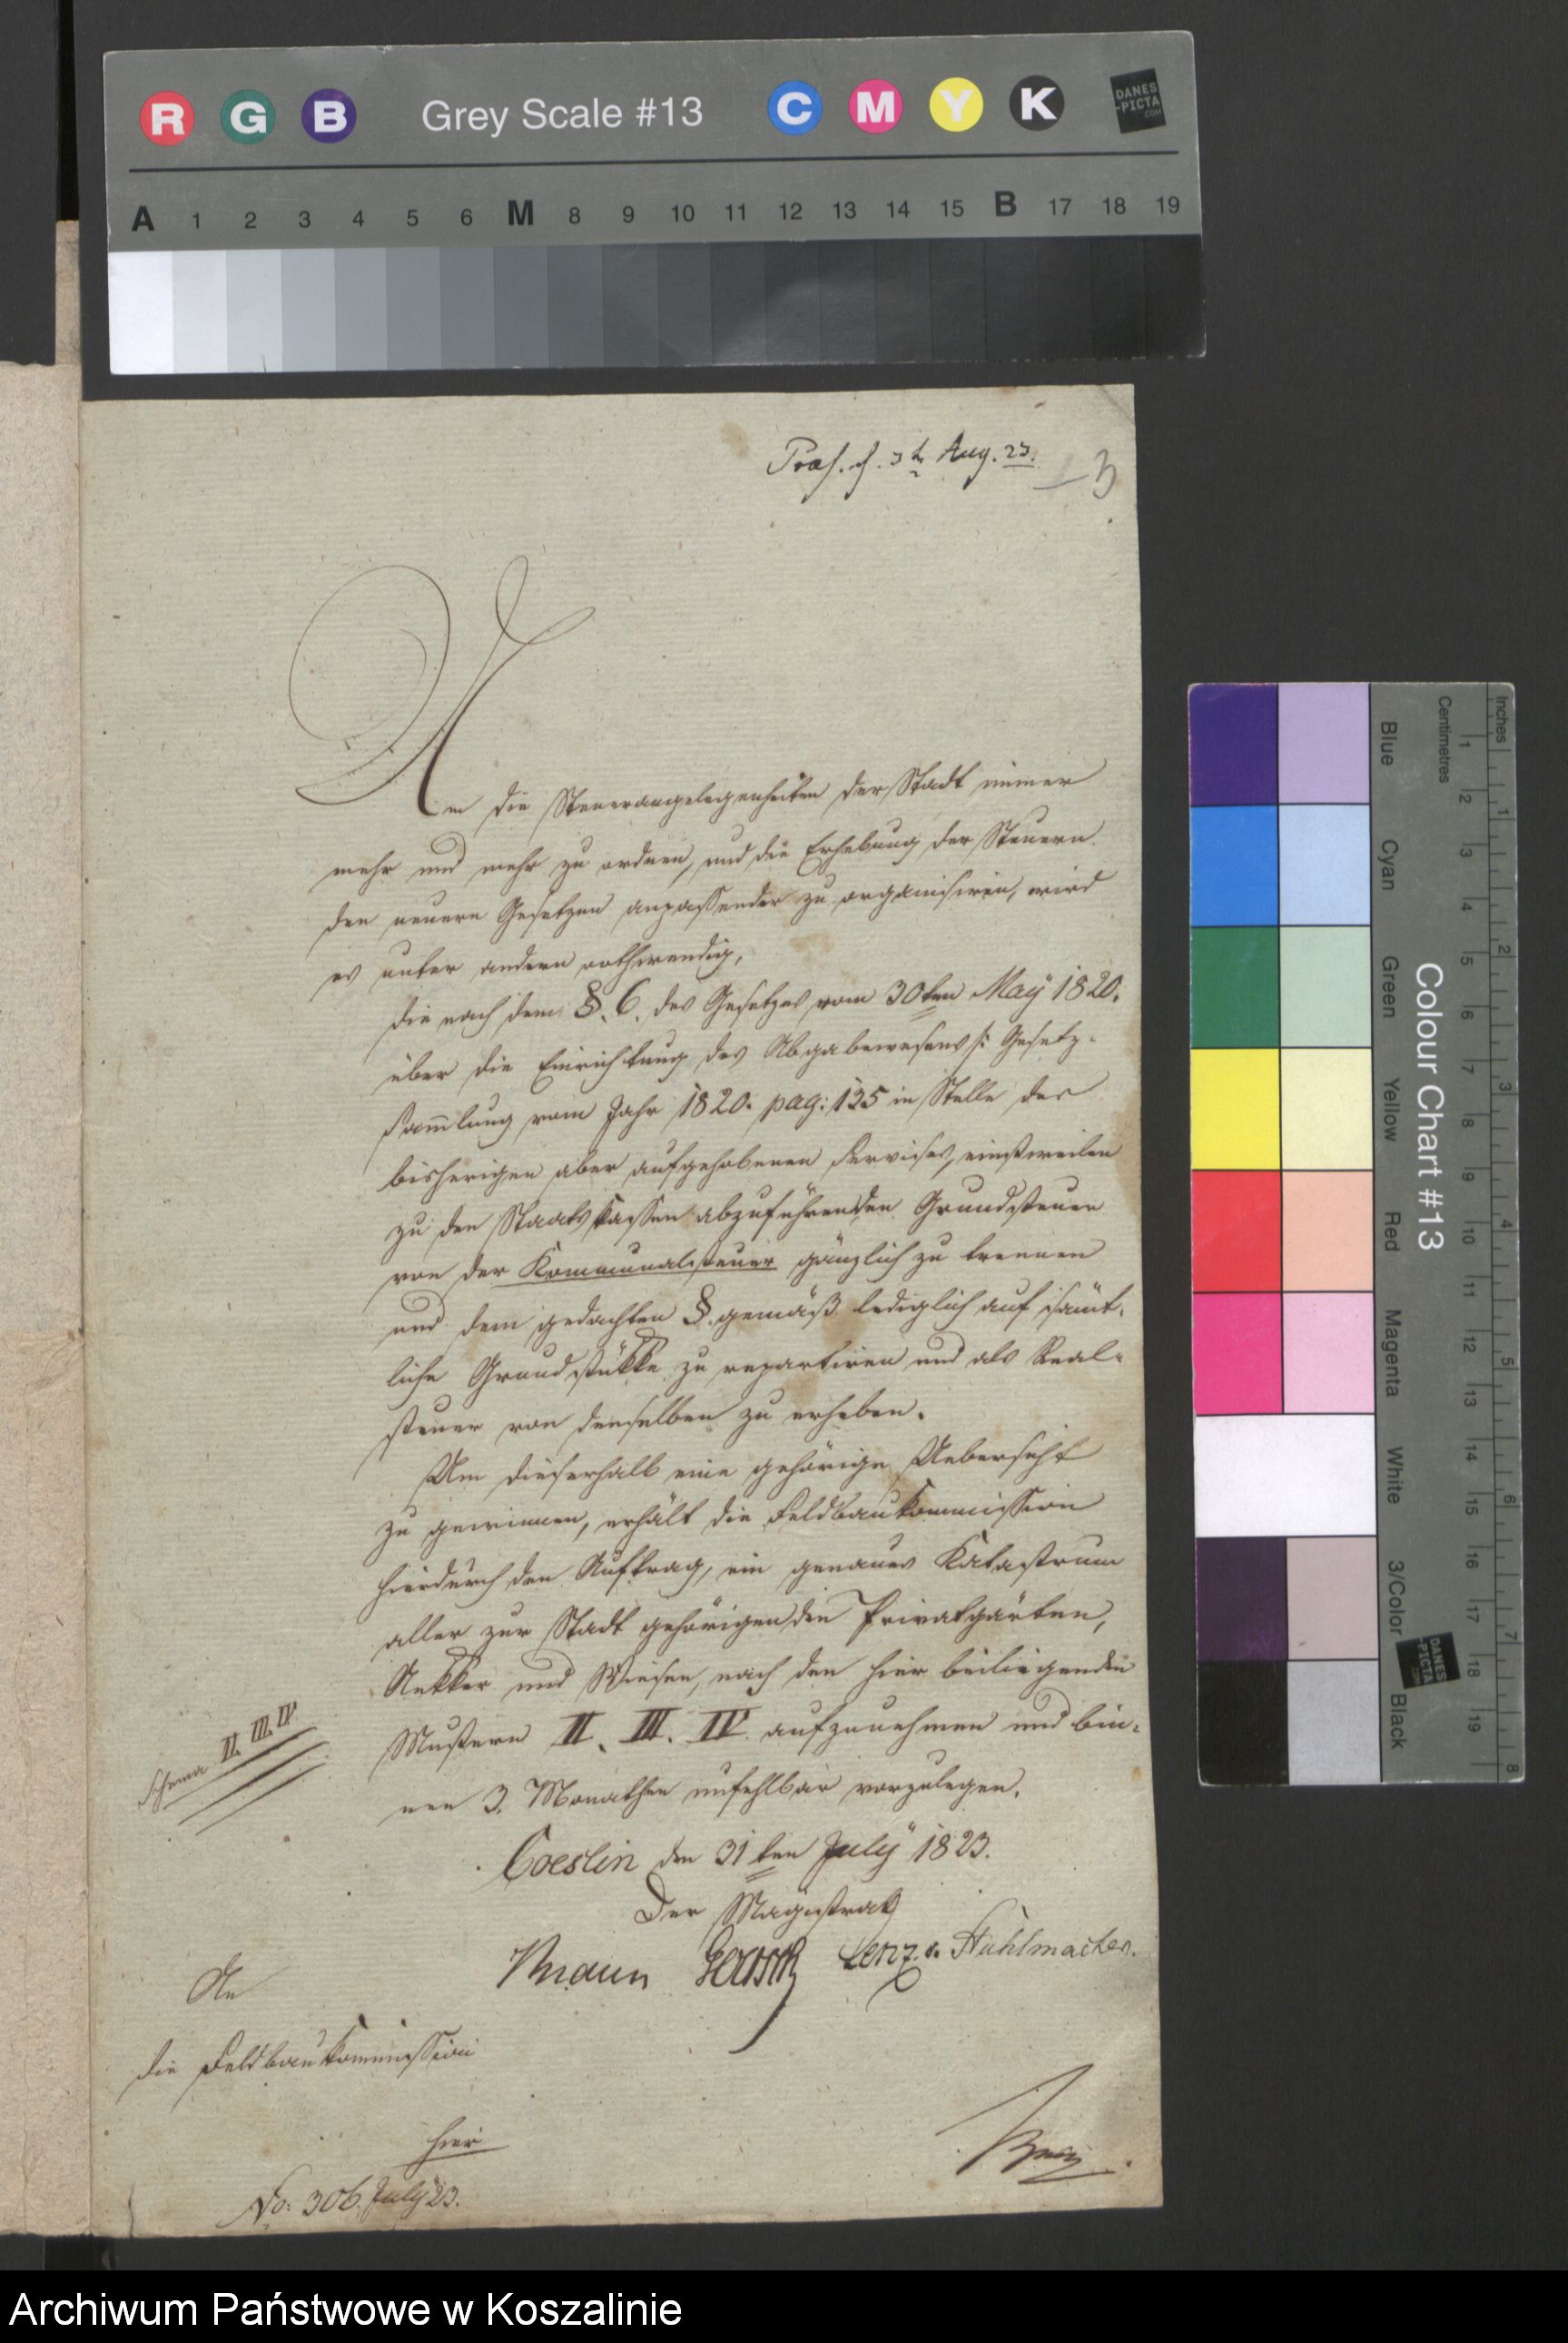 R G B Grey Scale #13 C M Y K DANES-PICTA.COM
A 1 2 3 4 5 6 M 8 9 10 11 12 13 14 15 B 17 18 19
Praes. d. 3 t Aug. 23.
3
Um die Steuerangelegenheiten der Stadt immer
mehr und mehr zu ordnen, und die Erhebung der Steuern
den neuern Gesetzen anpassender zu organisiren, wird
es unter andern nothwendig,
die nach dem §. 6. des Gesetzes vom 30ten May 1820.
über die Einrichtung des Abgabewesens /: Gesetz-
sam̄lung vom Jahr 1820. pag: 135 in Stelle des
bisherigen aber aufgehobenen Servises, einstweilen
zu den Staatskassen abzuführenden Grundsteuer
von der Kommunalsteuer gänzlich zu trennen
und dem gedachten §. gemäß lediglich auf sämt-
liche Grundstükke zu repartiren und als Real-
steuer von denselben zu erheben.
Um dieserhalb eine gehörige Uebersicht
zu gewinnen, erhält die Feldbaukommission
hierdurch den Auftrag, ein genaues Katastrum
aller zur Stadt gehörigenden Privatgärten,
Aekker und Wiesen, nach den hier beiliegenden
Mustern II. III. IV. aufzunehmen und bin-
nen 3. Monathen unfehlbar vorzulegen.
Schema II. III. IV.
Coeslin den 31ten July 1823.
Der Magistrat
Braun Lenz. Stuhlmacher.
An
die Feldbaukommission
hier
No: 306. July 23.
Blue Cyan Green Yellow Red Magenta White 3/Color Black
Colour Chart #13
Centimetres 1 2 3 4 5 6 7 8 9 10 11 12 13 14 15 16 17 18 19
Inches 1 2 3 4 5 6 7 8
DANES-PICTA.COM
Archiwum Państwowe w Koszalinie